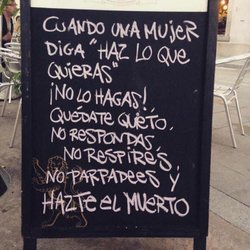 CUANDO UNA MUJER
DIGA "HAZ LO QUE
QUIERAS"
¡NO LO HAGAS!
QUÉDATE QUIETO,
NO RESPONDAS,
NO RESPIRES,
NO PARPADEES Y
HAZTE EL MUERTO